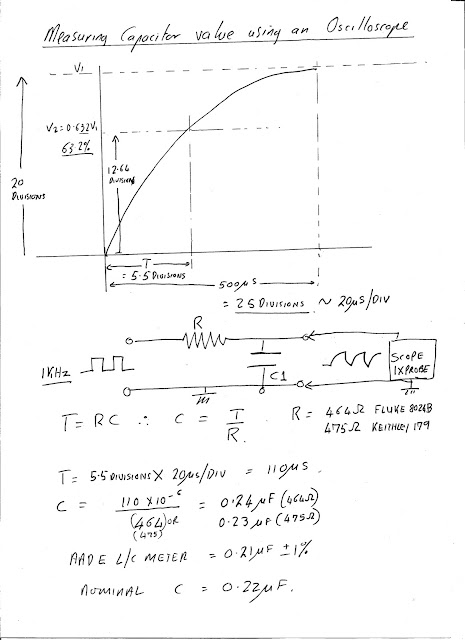 Measuring Capacitor value using an Oscilloscope
V1
V2 = 0.632V1
63.2%
12.64
DIVISIONS
20
DIVISIONS
T
= 5.5 DIVISIONS
500µS
= 25 DIVISIONS ~ 20µS/DIV
R
1KHz
C1
SCOPE
1XPROBE
T = RC ∴ C = T/R. R = 464Ω FLUKE 8024B
475Ω KEITHLEY 179
T = 5.5 DIVISIONS X 20µS/DIV = 110µS.
C = 110 X10⁻⁶ / (464) OR (475) = 0.24µF (464Ω)
0.23µF (475Ω)
AADE L/C METER = 0.21µF ±1%
NOMINAL C = 0.22µF.